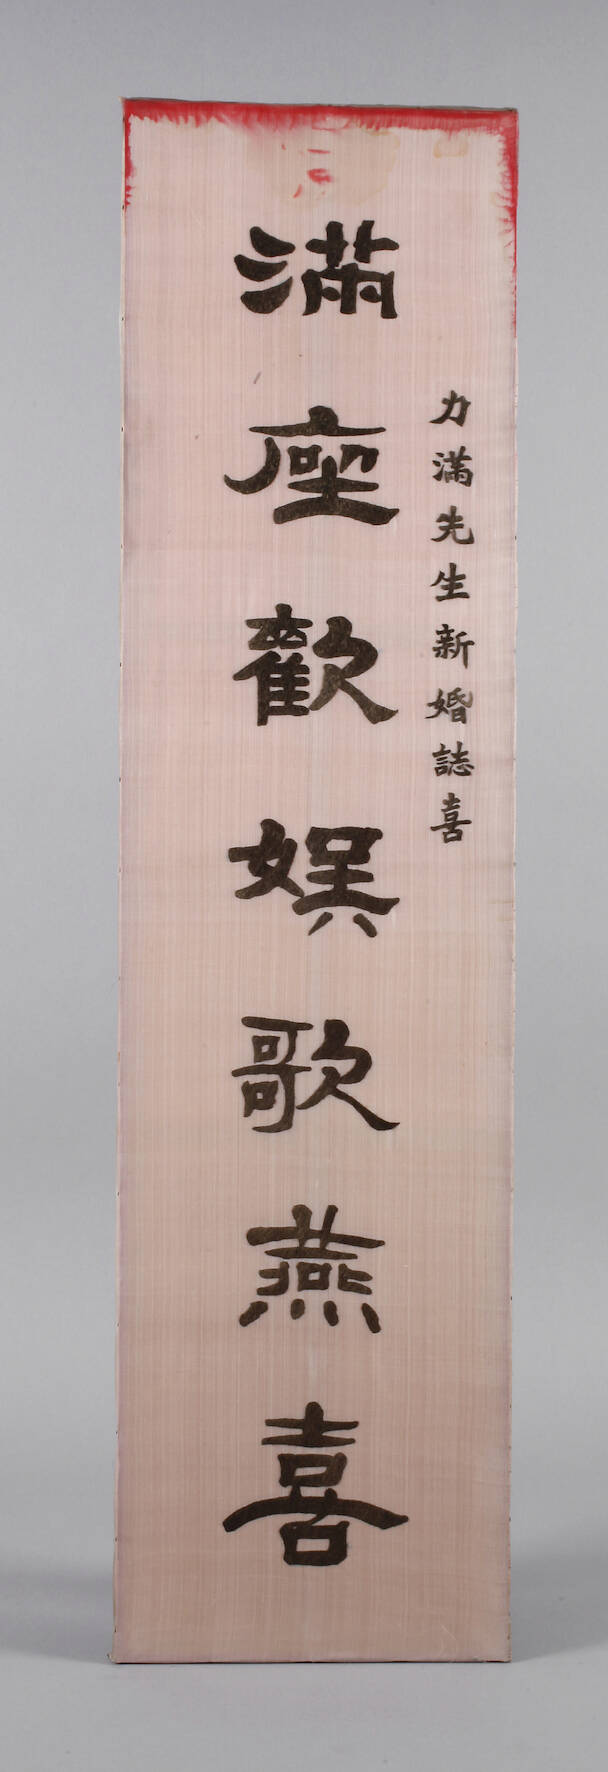 力滿先生新婚誌喜
滿座歡娛歌燕喜